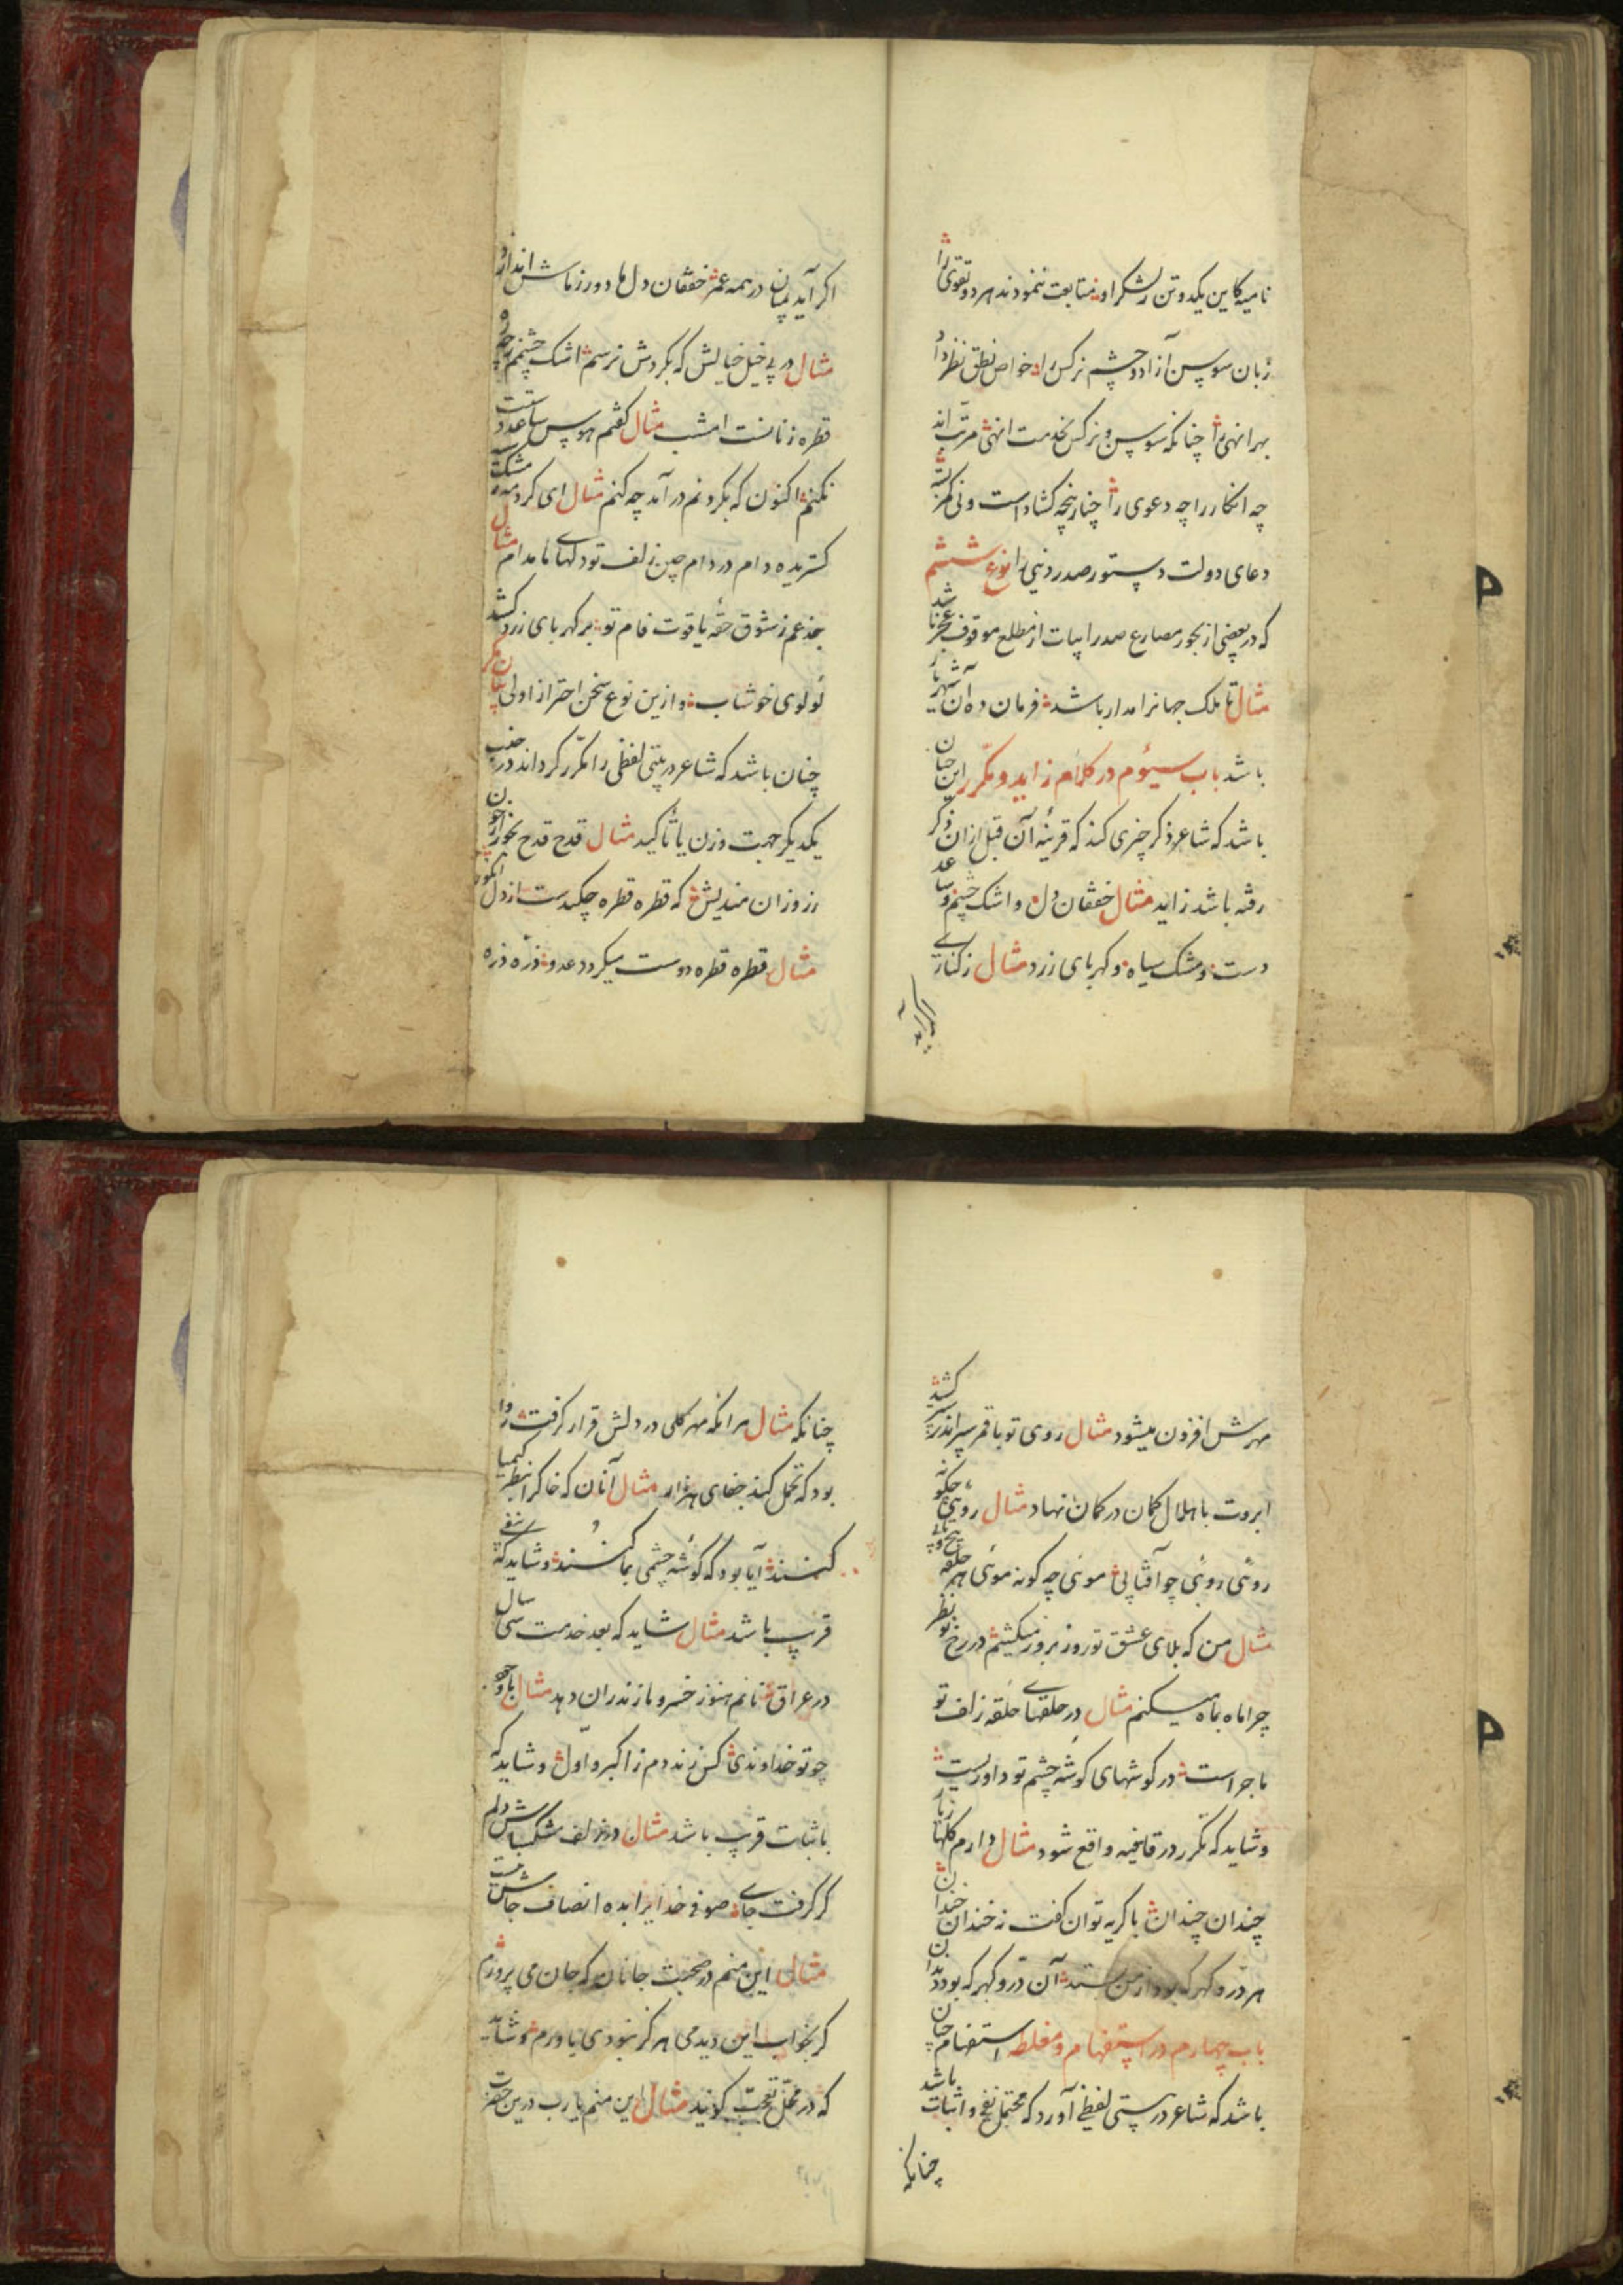 نامیه کاین یکدو تن ز لشکر او متابعت ننمودند هر دو تقوی را
زبان سوسن آزاد و چشم نرکس را خواص نطق نظر داد
بهر انهی را چنانکه سوسن و نرکس بخدمت انهی مرتب اند
چه انکار را چه دعوی را چنار پنجه کشاد است و نی کمر بسته
دعای دولت دستور صدر دنیی را نوع ششم
که در بعضی از بحور مصارع صدر ابیات از مطلع موقوف عجز باشد
مثال تا ملک جهانرا مدار باشد فرمان ده آن شهریار
باشد باب سیوم در کلام زاید و مکرر این چنان
باشد که شاعر ذکر چیزی کند که قرینه آن قبل ازان ذکر
رفته باشد زاید مثال خفقان دل و اشک چشم و ساعد
دست و مشک سیاه و کهربای زرد مثال ز کنارے
اکر آید
اکر آید پیان در همه عمر خفقان دل ها دور زماش اندازد
مثال در پی خیل خیالش که بکردش نرسم اشک چشمم
قطره زنانست امشب مثال کفتم هوس ساعد دستت
نکنم اکنون که بکردنم در آمد چه کنم مثال ای کرد مه ز مشک سیه
کستریده دام در دام چین زلف تو دلهای ما مدام مثال
جذعم ز شوق حقه یاقوت فام تو بر کهربای زرد کشد
لولوی خوشاب و ازین نوع سخن احتراز اولی بیان مکرر
چنان باشد که شاعر در بیتی لفظی را مکرر کرداند در جنب
یکدیکر جهت وزن یا تاکید مثال قدح قدح بخور
رز و زان مندیش که قطره قطره چکیدست از دل انکور
مثال قطره قطره دوست میکردد عدو ذره ذره
مهرش افزون میشود مثال روی تو با قمر سپر اندر سپر کشید
ابروت با هلال کمان در کمان نهاد مثال روئی چکونه
روئی روئی چو آفتابی موئی چه کونه موئی هر حلقه پیچ و تابی
مثال من که بلای عشق تو روز بروز میکشم در رخ تو نظر
چرا ماه بماه میکنم مثال در حلقهاے حلقه زلف تو
ماجراست در کوشهای کوشه چشم تو داوریست
وشاید که مکرر در قافیه واقع شود مثال دارم کلها
چندان چندان با کریه توان کفت ز خندان خندان
هر در و کهر که بود از من ستد آن در و کهر که بود دندان
باب چهارم در استفهام و مغلطه استفهام چنان
باشد که شاعر در بیتی لفظی آورد که محتمل نفی و اثبات باشد
چنانکه
چنانکه مثال هر انکه مهر کلی در دلش قرار کرفت روا
بود که تحمل کند جفای هزار مثال آنان که خاک را بنظر کیمیا
کنند آیا بود که کوشه چشمی بما کنند وشاید که بنفی
قرب باشد مثال شاید که بعد خدمت سی سال
در عراق نانم هنوز خسرو مازندران دهد مثال با وجود
چو تو خداوندی کس زند دم ز اکبر و اول وشاید که
باثبات قرب باشد مثال در زلف مشکباش دلم
کر کرفت جاے صوفی خدایرا بده انصاف جاش نیست
مثال این منم در صحبت جانان که جان می پرورم
کر بخواب این دیدمی هرکز نبودی باورم وشاید
که در محل تعجب کویند مثال این منم یارب درین حضرت